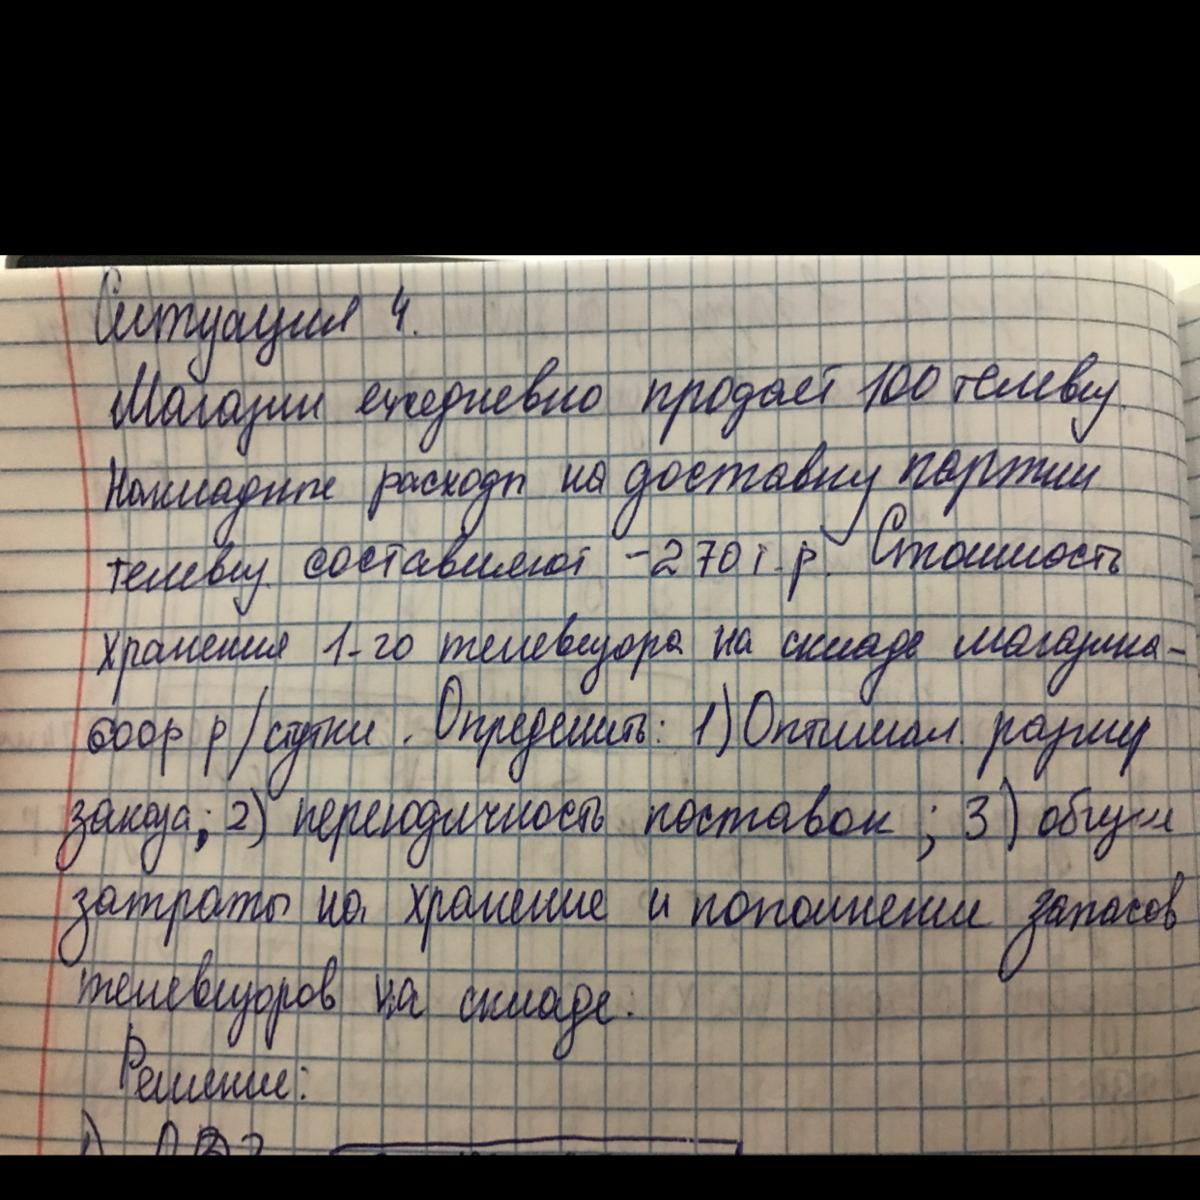 Ситуация 4.
Магазин ежедневно продает 100 телевиз.
Накладные расходы на доставку партии
телевиз. составляют -270т.р. Стоимость
хранения 1-го телевизора на складе магазина-
600р р/сутки. Определить: 1) Оптимал. размер
заказа; 2) переодичность поставок; 3) общие
затраты на хранение и пополнении запасов
телевизоров на складе.
Решение: